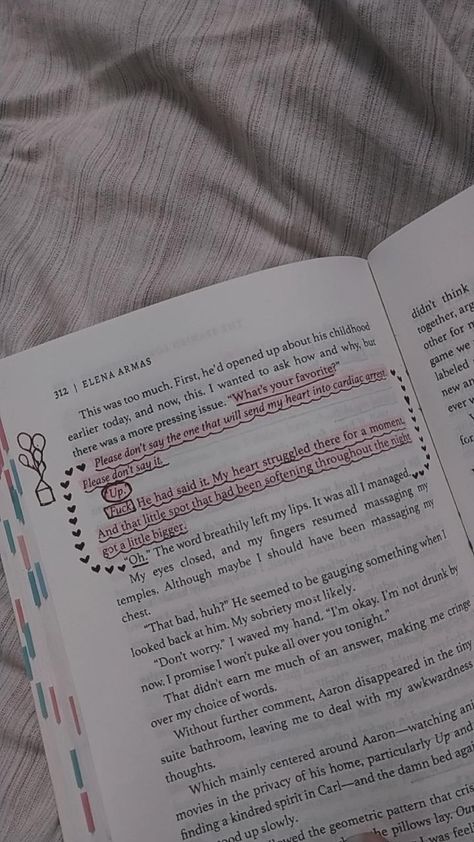 312 | ELENA ARMAS
This was too much. First, he'd opened up about his childhood
earlier today, and now, this. I wanted to ask how and why, but
there was a more pressing issue. "What's your favorite?"
Please don't say the one that will send my heart into cardiac arrest.
Please don't say it.
"Up."
Fuck. He had said it. My heart struggled there for a moment.
And that little spot that had been softening throughout the night
got a little bigger.
"Oh." The word breathily left my lips. It was all I managed.
My eyes closed, and my fingers resumed massaging my
temples. Although maybe I should have been massaging my
chest.
"That bad, huh?" He seemed to be gauging something when I
looked back at him. My sobriety most likely.
"Don't worry." I waved my hand. "I'm okay. I'm not drunk by
now. I promise I won't puke all over you tonight."
That didn't earn me much of an answer, making me cringe
over my choice of words.
Without further comment, Aaron disappeared in the tiny
suite bathroom, leaving me to deal with my awkwardness
thoughts.
Which mainly centered around Aaron—watching ani
movies in the privacy of his home, particularly Up and
finding a kindred spirit in Carl—and the damn bed agai
ood up slowly.
llowed the geometric pattern that cris
the pillows lay. Our
I was feel
didn't think
together, arg
other for r
game we
labeled
new
ever